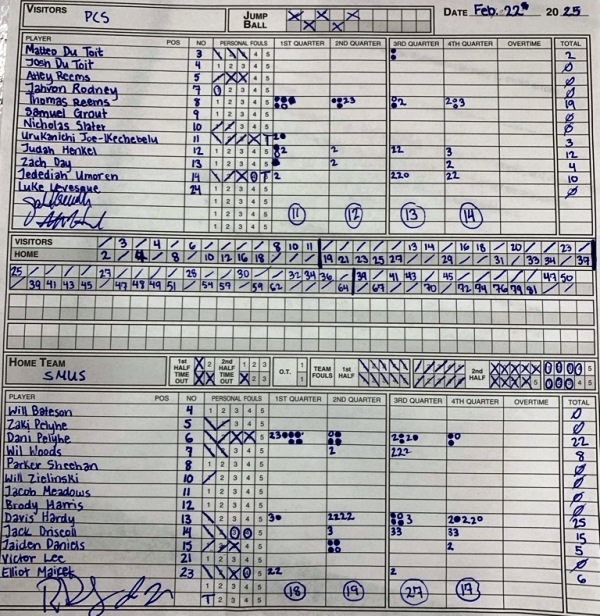 VISITORS PCS JUMP BALL DATE Feb. 22nd 2025
PLAYER POS NO PERSONAL FOULS 1ST QUARTER 2ND QUARTER 3RD QUARTER 4TH QUARTER OVERTIME TOTAL
Matteo Du Toit 3 4 5 2
Josh Du Toit 4 1 2 3 4 5 Ø
Arley Reems 5 4 5 Ø
Jahron Rodney 7 2 3 4 5 Ø
Thomas Reems 8 1 2 3 4 5 19
Samuel Grout 9 1 2 3 4 5 Ø
Nicholas Slater 10 3 4 5 Ø
Urukanichi Joe-Ikechebelu 11 T 3
Judah Henkel 12 1 2 3 4 5 2 2 22 3 12
Zach Day 13 1 2 3 4 5 2 2 4
Jedediah Umoren 14 T 2 220 22 10
Luke Levesque 24 1 2 3 4 5 Ø
11 12 13 14
VISITORS 3 4 6 8 10 11 13 14 16 18 20 23
HOME 2 4 8 10 12 16 18 19 21 23 25 27 29 31 33 34 37
25 27 28 30 32 34 36 39 41 43 45 47 50
39 41 43 45 47 48 49 51 54 57 59 62 64 67 70 72 74 76 79 81
HOME TEAM SMUS 1ST HALF TIME OUT 2ND HALF TIME OUT O.T. 1 TEAM FOULS 1ST HALF 2ND HALF
PLAYER POS NO PERSONAL FOULS 1ST QUARTER 2ND QUARTER 3RD QUARTER 4TH QUARTER OVERTIME TOTAL
Will Bateson 4 1 2 3 4 5 Ø
Zaki Pelyhe 5 3 4 5 Ø
Dani Pelyhe 6 5 22
Wil Woods 7 3 4 5 2 222 8
Parker Sheehan 8 1 2 3 4 5 Ø
Will Zielinski 10 2 3 4 5 Ø
Jacob Meadows 11 1 2 3 4 5 Ø
Brody Harris 12 1 2 3 4 5 Ø
Davis Hardy 13 2222 25
Jack Driscoll 14 5 3 33 33 15
Jaiden Daniels 15 4 5 2 5
Victor Lee 21 1 2 3 4 5 Ø
Elliot Mairet 23 5 22 2 6
18 19 27 17